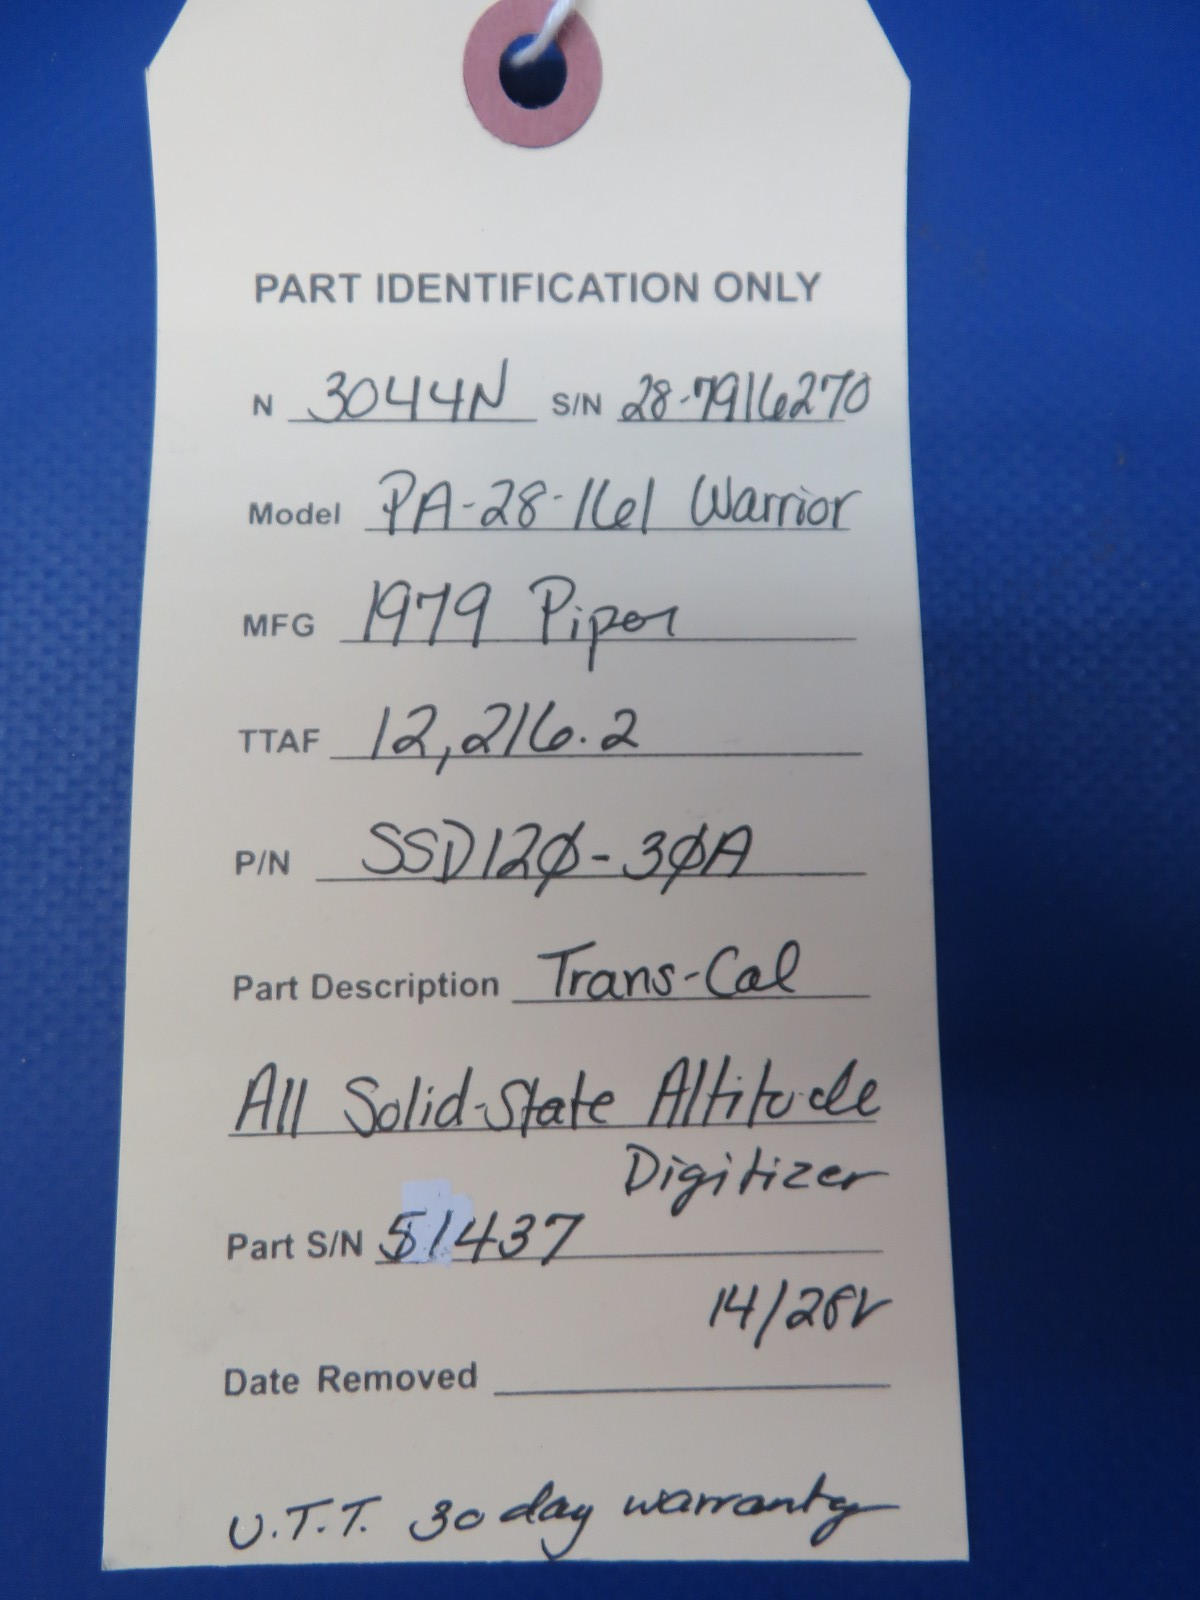 PART IDENTIFICATION ONLY
N 3044N S/N 28-7916270
Model PA-28-161 Warrior
MFG 1979 Piper
TTAF 12,216.2
P/N SSD12Ø-3ØA
Part Description Trans-Cal
All Solid-State Altitude
Digitizer
Part S/N 51437
14/28V
Date Removed
U.T.T. 30 day warranty